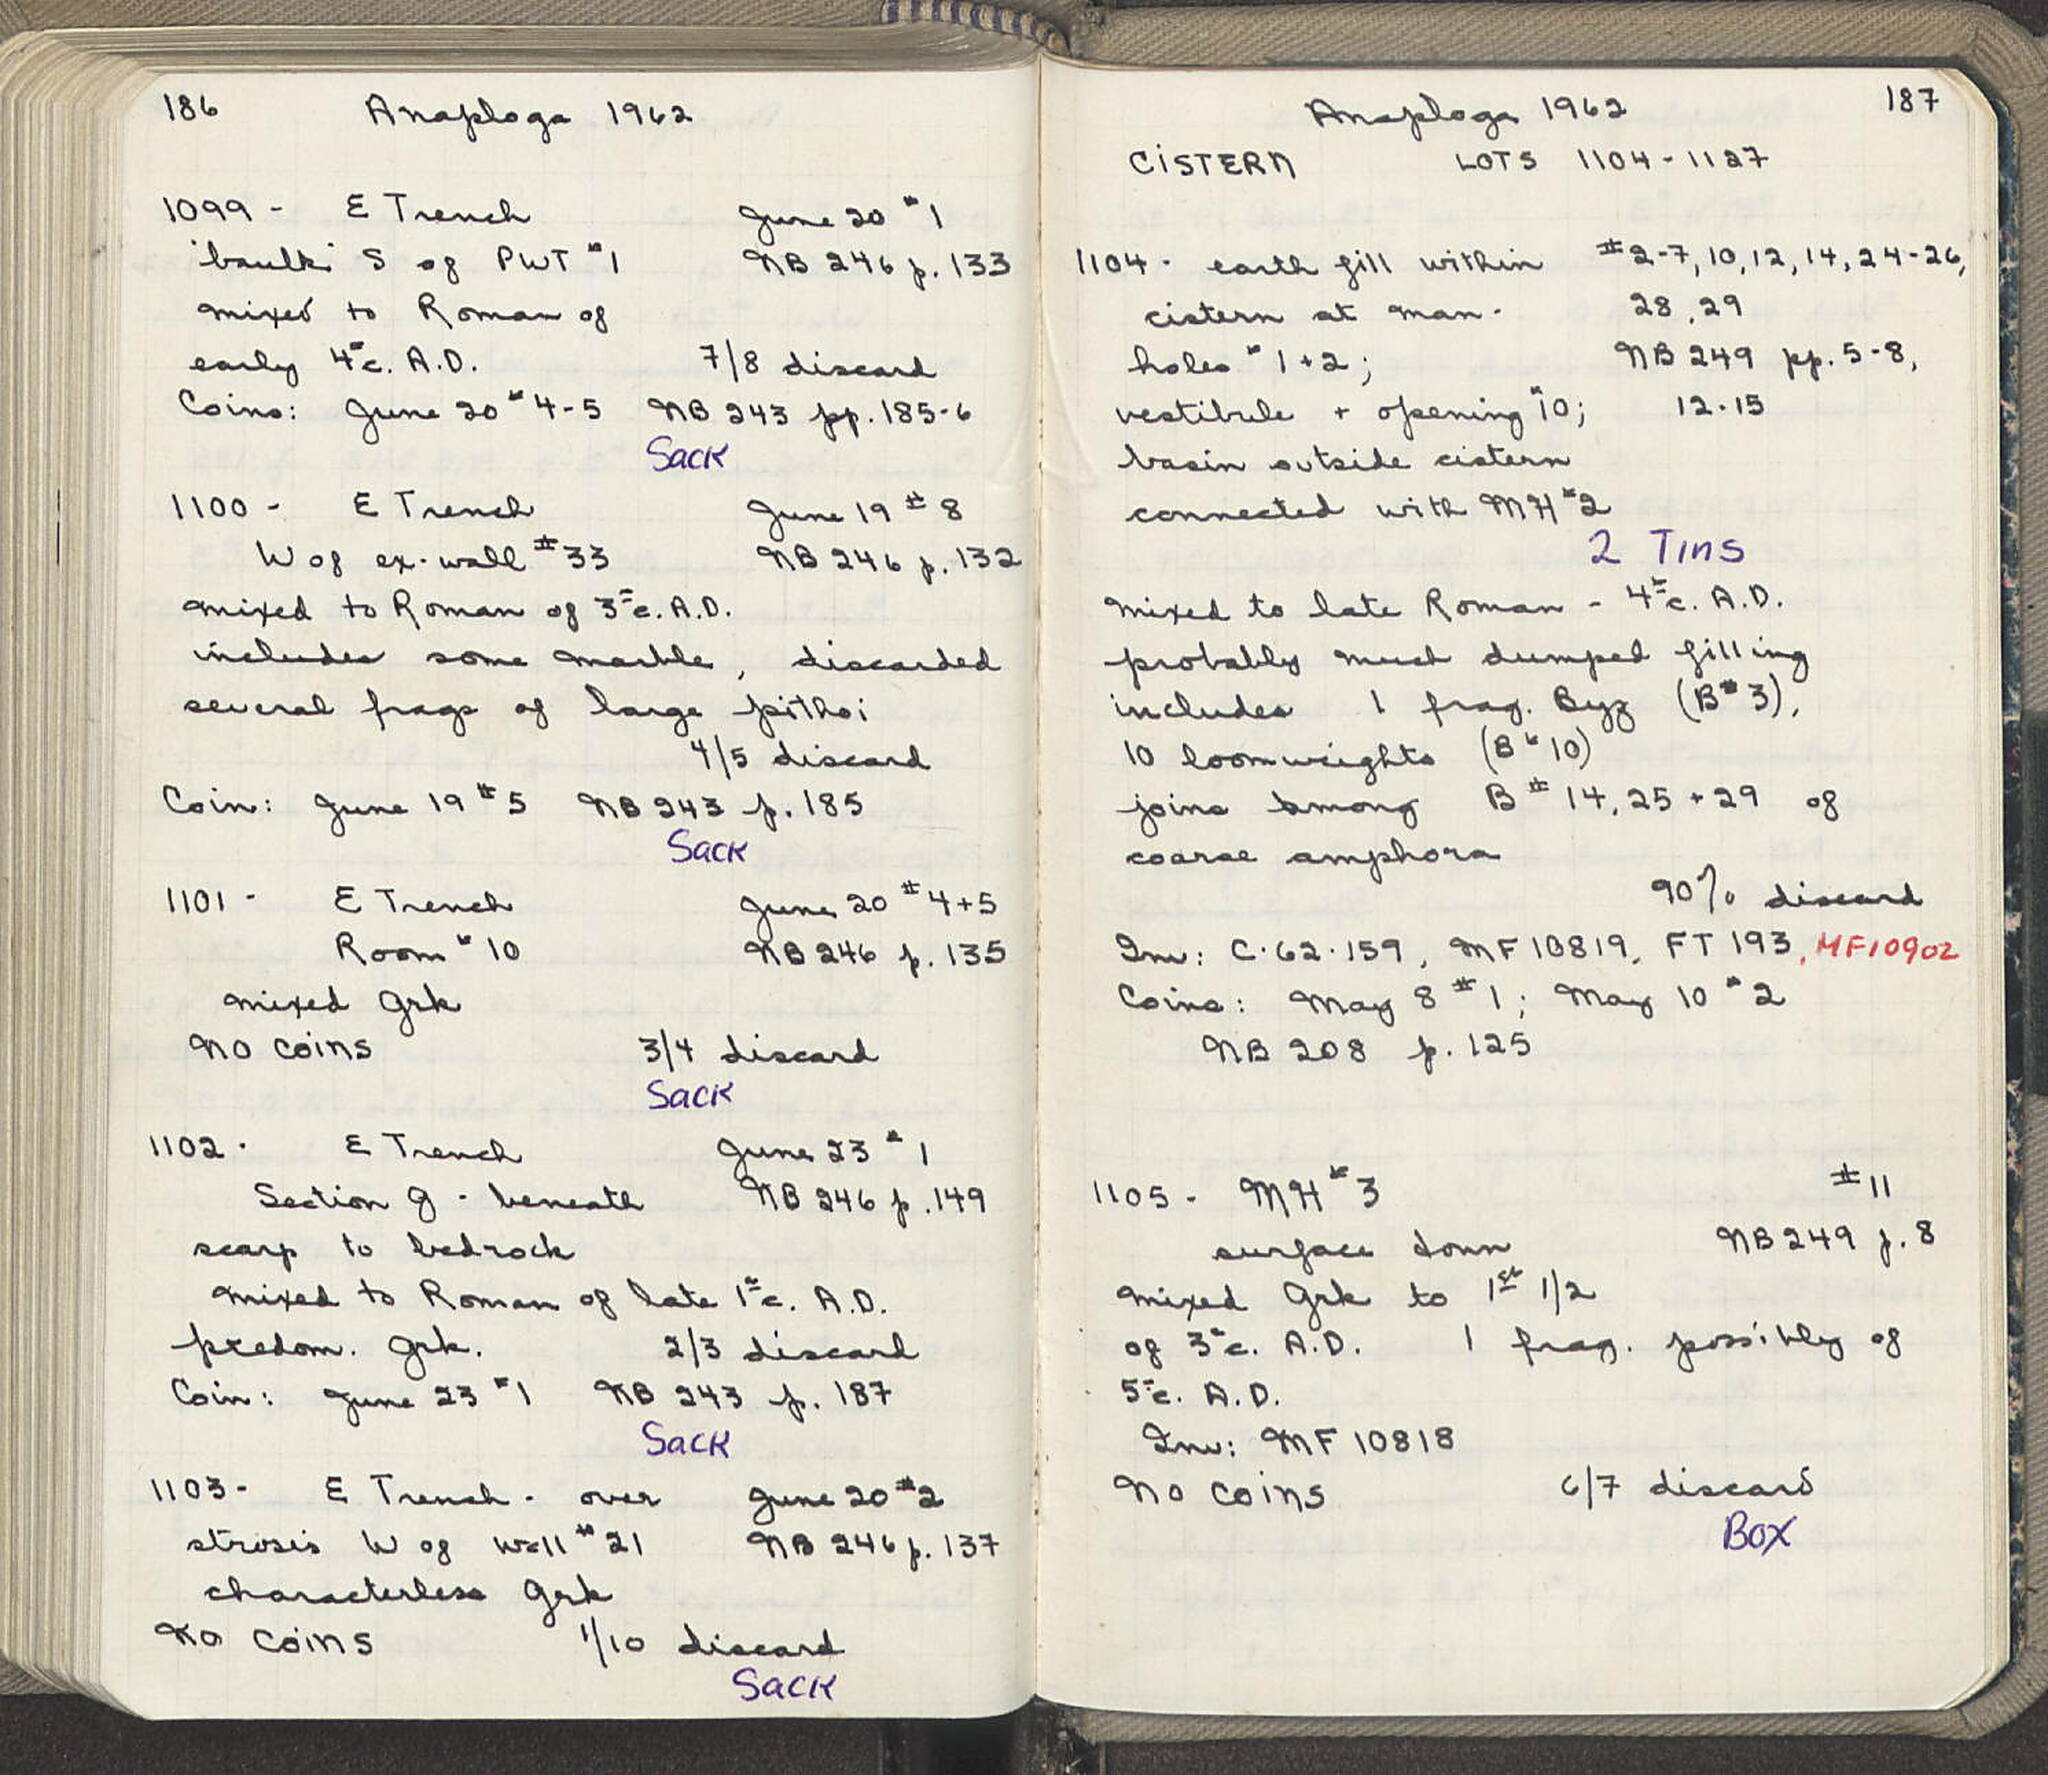 186 Anaploga 1962
1099 - E Trench June 20 #1
'baulk' S of PWT #1 NB 246 p. 133
mixed to Roman of
early 4th c. A.D. 7/8 discard
Coins: June 20 #4-5 NB 243 pp. 185-6
Sack
1100 - E Trench June 19 #8
W of ex-wall #33 NB 246 p. 132
mixed to Roman of 3rd c. A.D.
includes some marble, discarded
several frags of large pithoi
4/5 discard
Coin: June 19 #5 NB 243 p. 185
Sack
1101 - E Trench June 20 #4+5
Room #10 NB 246 p. 135
mixed Grk
No coins 3/4 discard
Sack
1102 - E Trench June 23 #1
Section g - beneath NB 246 p. 149
scarp to bedrock
mixed to Roman of late 1st c. A.D.
predom. Grk. 2/3 discard
Coin: June 23 #1 NB 243 p. 187
Sack
1103 - E Trench - over June 20 #2
strosis W of wall #21 NB 246 p. 137
characterless Grk
No coins 1/10 discard
Sack
Anaploga 1962 187
CISTERN LOTS 1104-1127
1104 - earth fill within #2-7, 10, 12, 14, 24-26,
cistern at man- 28, 29
holes #1+2; NB 249 pp. 5-8,
vestibule + opening #10; 12-15
basin outside cistern
connected with MH #2
2 Tins
mixed to late Roman - 4th c. A.D.
probably much dumped filling
includes 1 frag. Byz (B#3),
10 loomweights (B#10)
joins among B# 14, 25 + 29 of
coarse amphora
90% discard
Inv: C-62-159, MF 10819, FT 193, MF10902
Coins: May 8 #1; May 10 #2
NB 208 p. 125
1105 - MH #3 #11
surface down NB 249 p. 8
mixed Grk to 1st 1/2
of 3rd c. A.D. 1 frag. possibly of
5th c. A.D.
Inv: MF 10818
No coins 6/7 discard
Box